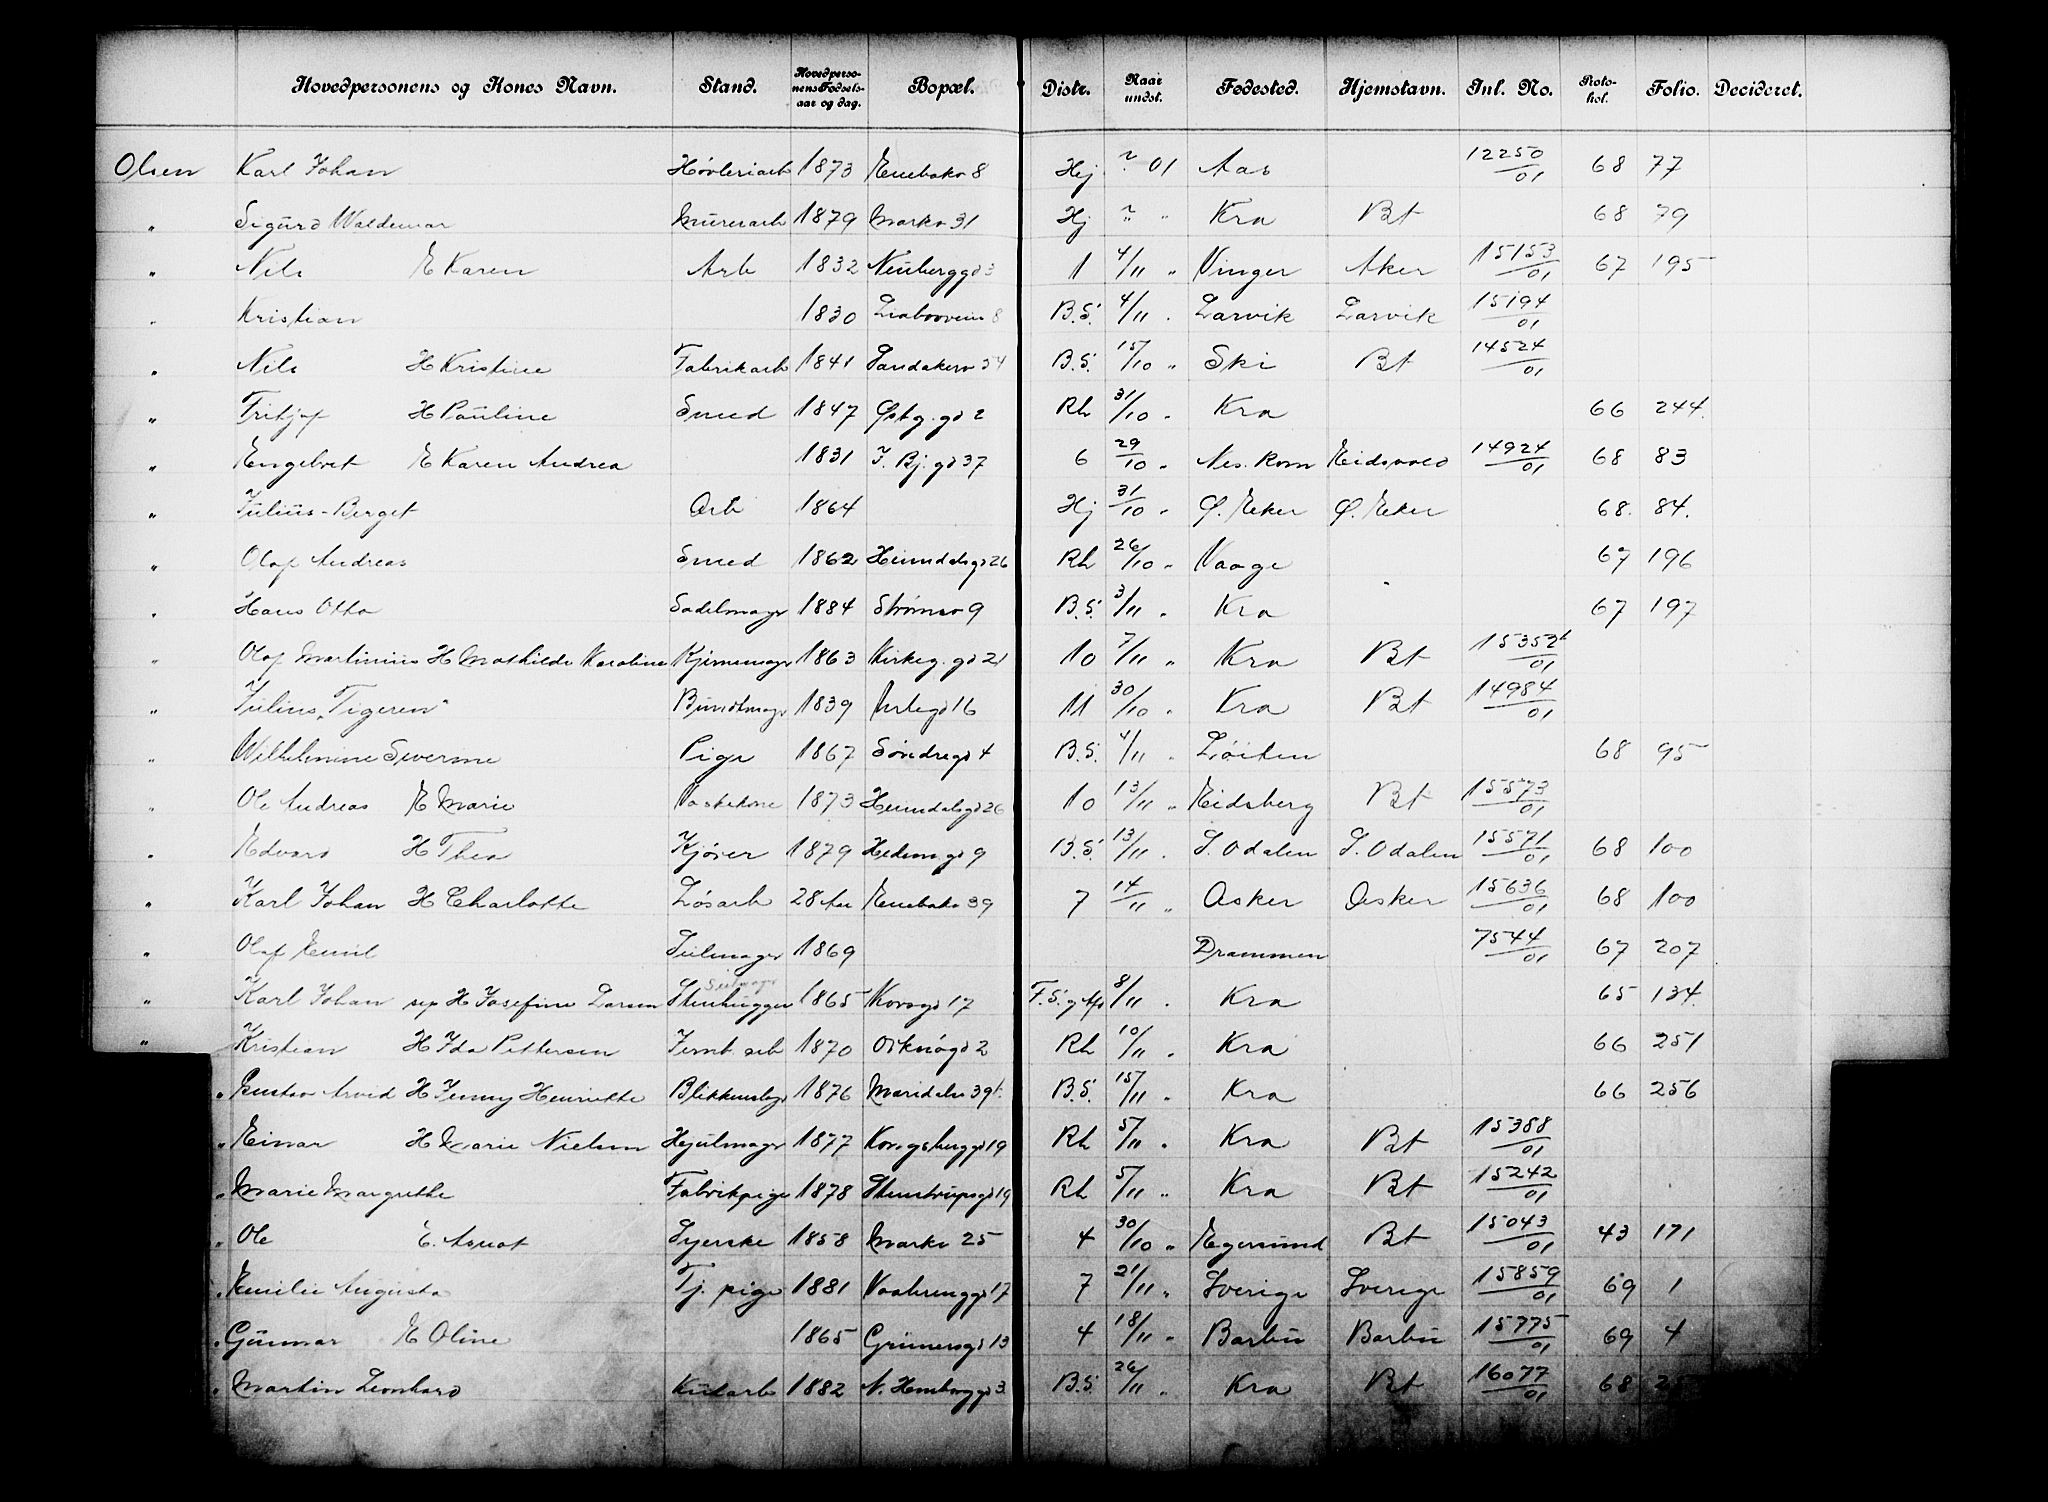 Hovedpersonens og Kones Navn. Stand. Hovedpersonens Fødselsaar og dag. Bopæl. Distr. Naar undst. Fødested. Hjemstavn. Inl. No. Protokol. Folio. Decideret.
Olsen Karl Johan Høvleriarb 1873 Enebakv 8 Hj ? 01 Aas 12250/01 68 77
" Sigurd Waldemar Murerarb 1879 Markv 31 Hj ? " Kra Bt 68 79
" Nils E Karen Arb 1832 Neuberggd 3 1 4/11 " Vinger Aker 15153/01 67 195
" Kristian 1830 Liabroveien 8 B.S. 4/11 " Larvik Larvik 15194/01
" Nils H Kristine Fabrikarb 1841 Sandakerv 54 B.S. 15/10 " Ski Bt 14524/01
" Fritjof H Pauline Smed 1847 Østbg. gd 2 Rh 31/10 " Kra 66 244.
" Engebret E Karen Andrea 1831 I. Bj. gd 37 6 29/10 " Nes. Rom Eidsvold 14924/01 68 83
" Julius - Berget Arb 1864 Hj 31/10 " Ø. Eker Ø. Eker 68. 84.
" Olaf Andreas Smed 1862 Heimdalsgd 26 Rh 26/10 " Vaage 67 196
" Hans Otto Sadelmagr 1884 Strømsv 9 B.S. 3/11 " Kra 67 197
" Olaf Martinius H Mathilde Karoline 1863 Kirkeg. gd 21 10 7/11 " Kra Bt 15352/01
" Julius "Tigeren" Buntmagr 1839 Urtegd 16 11 30/10 " Kra Bt 14984/01
" Wilhelmine Severine Pige 1867 Søndregd 4 B.S. 4/11 " Løiten 68 95
" Ole Andreas E Marie Vaskekone 1873 Heimdalsgd 26 10 13/11 " Eidsberg Bt 15573/01
" Edvard H Thea Kjører 1879 Hedemgd 9 B.S. 13/11 " S. Odalen S. Odalen 15571/01 68 100
" Karl Johan H Charlotte Løsarb 28 Aar Enebakv 39 7 14/11 " Asker Asker 15636/01 68 100
" Olaf Emil Seilmagr 1869 Drammen 7544/01 67 207
" Karl Johan sep H Josefine Larsen Stenhugger Seilmagr 1865 Korsgd 17 8/11 " Kra 65 134.
" Kristian H Ida Pettersen Jernb. arb 1870 Orknøgd 2 Rh 10/11 " Kra 66 251
" Gustav Arvid H Jenny Henriette Blikkenslagr 1876 Maridalsv 39 B.S. 15/11 " Kra 66 256
" Einar H Marie Nielsen Hjulmagr 1877 Kongsberggd 19 Rh 5/11 " Kra Bt 15388/01
" Marie Margrethe Fabrikpige 1878 Stenstrupsgd 19 Rh 5/11 " Kra Bt 15242/01
" Ole E. Asnat Syerske 1858 Markv 25 4 30/10 " Egersund Bt 15043/01 43 171
" Emilie Augusta Tj. pige 1881 Vaalerenggd 17 7 21/11 " Sverige Sverige 15859/01 69 1
" Gunnar E Oline 1865 Grünersgd 13 4 18/11 " Barbu Barbu 15775/01 69 4
" Martin Leonhard Kularb 1882 N. Hembrggd 3 B.S. 26/11 " Kra Bt 16077/01 68